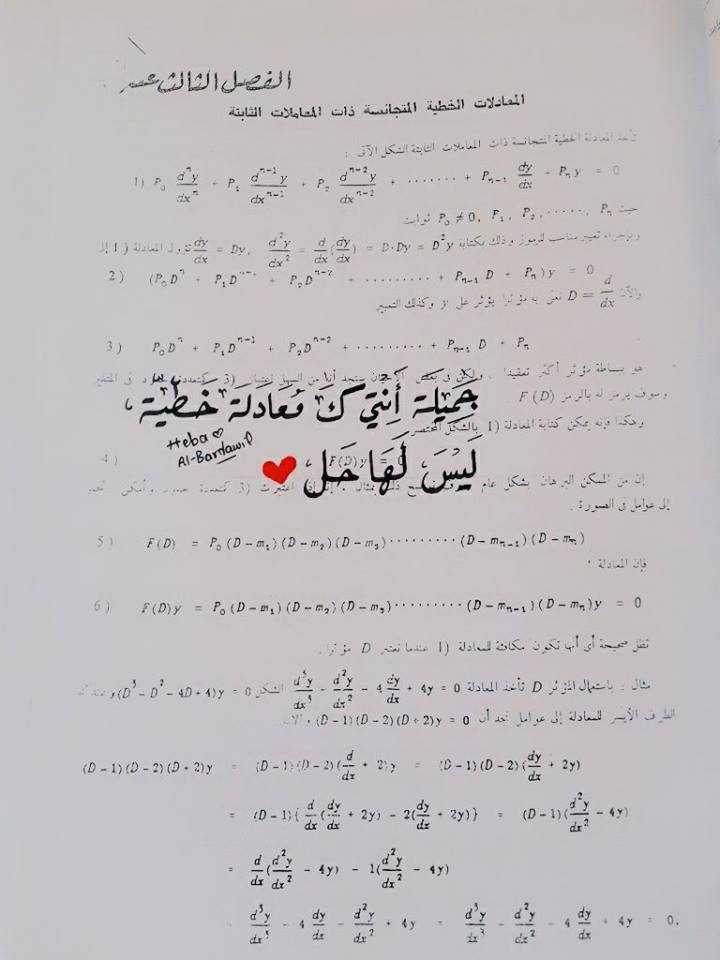 الفصل الثالث عشر
المعادلات الخطية المتجانسة ذات المعاملات الثابتة
تأخذ المعادلة الخطية المتجانسة ذات المعاملات الثابتة الشكل الآتي :
1) P₀ dⁿy/dxⁿ + P₁ dⁿ⁻¹y/dxⁿ⁻¹ + P₂ dⁿ⁻²y/dxⁿ⁻² + ······· + Pₙ₋₁ dy/dx + Pₙy = 0
حيث P₀ ≠ 0, P₁, P₂, ·····, Pₙ ثوابت
وبإجراء تغيير مناسب للرموز وذلك بكتابة dy/dx = Dy, d²y/dx² = d/dx(dy/dx) = D·Dy = D²y تؤول المعادلة (1 إلى
2) (P₀Dⁿ + P₁Dⁿ⁻¹ + P₂Dⁿ⁻² + ········· + Pₙ₋₁ D + Pₙ)y = 0
والآن D = d/dx نعني به مؤثرا يؤثر على y وكذلك التعبير
3) P₀Dⁿ + P₁Dⁿ⁻¹ + P₂Dⁿ⁻² + ········· + Pₙ₋₁ D + Pₙ
هو ببساطة مؤثر أكثر تعقيدا . ولكن في بعض سنجد أن من السهل (3 كمتعددة حدود في المتغير
وسوف يرمز له بالرمز F(D) .
جَمِيلَة أَنْتِي كَ مُعَادَلَة خَطِّيَّة،
وهكذا فإنه يمكن كتابة المعادلة (1 بالشكل المختصر
Heba♡
Al-Bardawil
4) F(D)y = 0
لَيْسَ لَهَا حَل ❤
إن من الممكن البرهان بشكل عام ذلك بمثال ، (3 كمتعددة حدود وأمكن
إلى عوامل في الصورة .
5) F(D) = P₀(D−m₁)(D−m₂)(D−m₃)·········(D−mₙ₋₁)(D−mₙ)
فإن المعادلة
6) F(D)y = P₀(D−m₁)(D−m₂)(D−m₃)·········(D−mₙ₋₁)(D−mₙ)y = 0
تظل صحيحة أي أنها تكون مكافئة للمعادلة (1 عندما نعتبر D مؤثرا .
مثال : باستعمال المؤثر D تأخذ المعادلة d³y/dx³ − d²y/dx² − 4 dy/dx + 4y = 0 الشكل (D³−D²−4D+4)y = 0
الطرف الأيسر للمعادلة إلى عوامل نجد أن (D−1)(D−2)(D+2)y = 0
(D−1)(D−2)(D+2)y = (D−1)(D−2)(d/dx + 2)y = (D−1)(D−2)(dy/dx + 2y)
= (D−1){d/dx(dy/dx + 2y) − 2(dy/dx + 2y)} = (D−1)(d²y/dx² − 4y)
= d/dx(d²y/dx² − 4y) − 1(d²y/dx² − 4y)
d³y/dx³ − 4 dy/dx − d²y/dx² + 4y = d³y/dx³ − d²y/dx² − 4 dy/dx + 4y = 0.